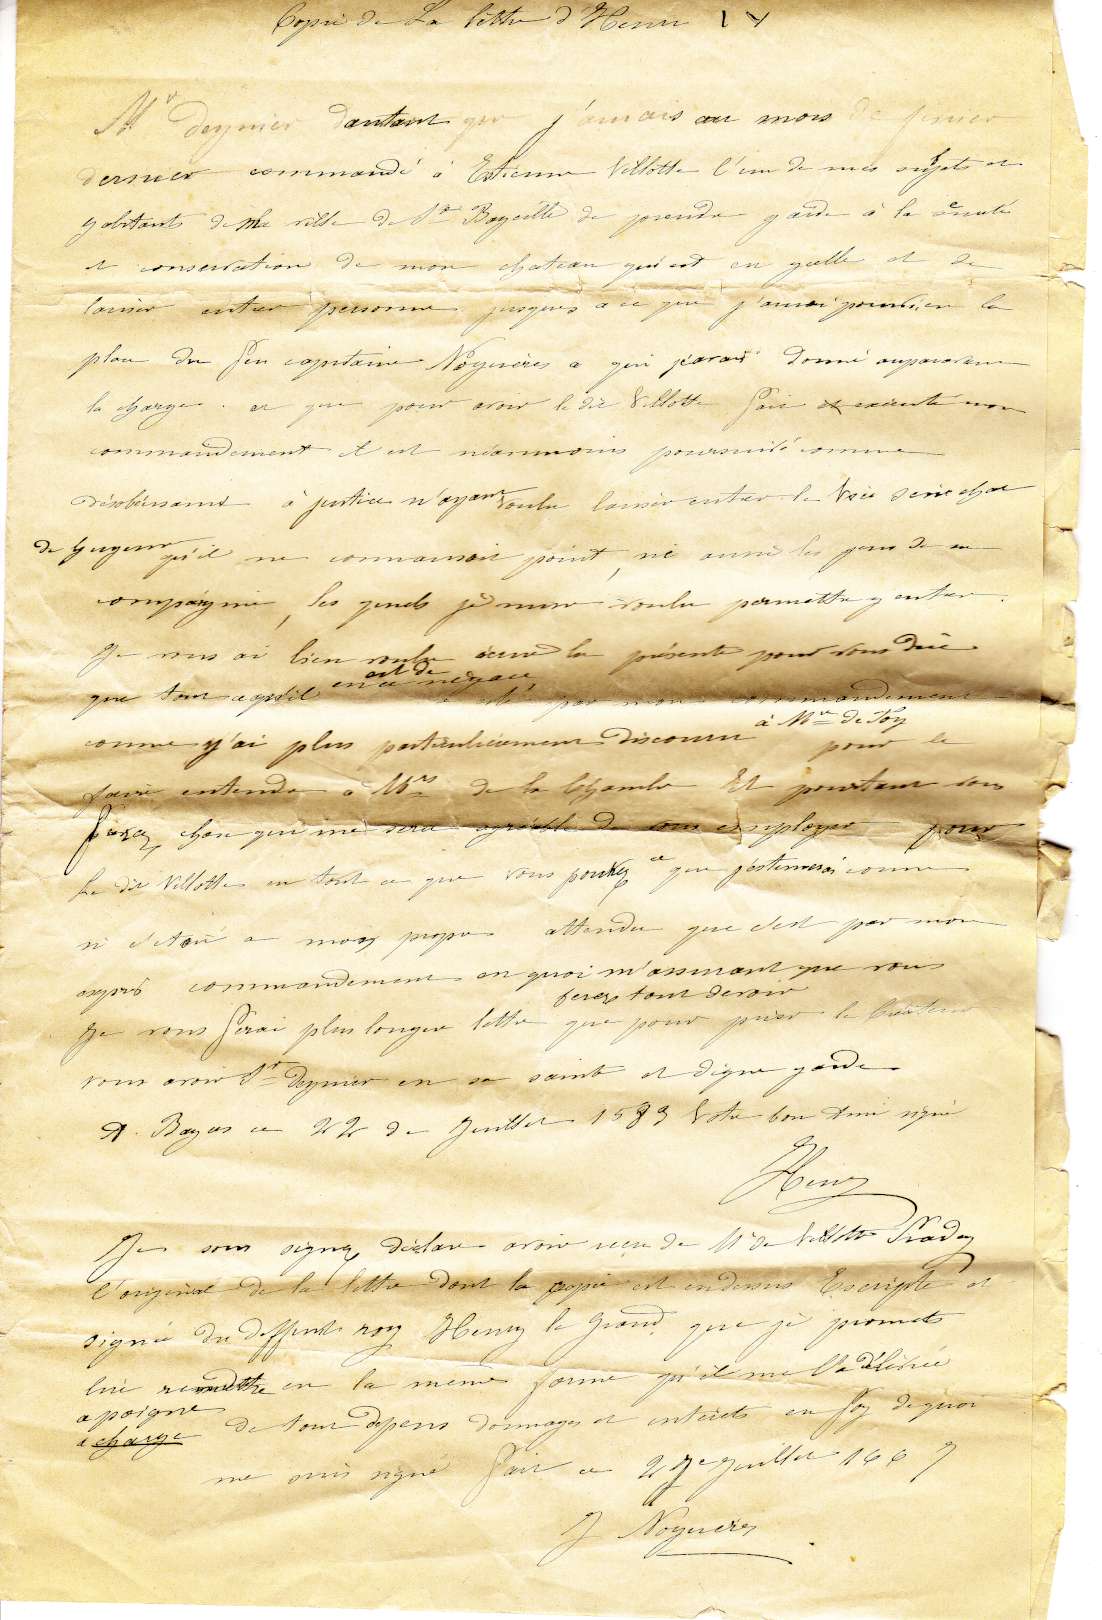 Copie de La lettre d'Henri IV
Mr deynier dautant que j'aurais au mois de fevrier
dernier commandé à Estienne Villotte l'un de mes sujets et
habitants de ma ville de Ste Bazeille de prendre garde à la sureté
et conservation de mon chateau qui est en ycelle et de
laisser entrer personne jusques a ce que j'aurai pourvu en la
place du feu capitaine Noguères a qui j'avais donné auparavant
la charge. et que pour avoir le dit Villotte fait et exécuté mon
commandement il est néanmoins poursuivi comme
désobéissant à justice n'ayant voulu laisser entrer le vice sénéchal
qu'il ne connaissait point, ni aussi les gens de sa
compaignie, les quels je voulu permettre y entrer.
Je vous ai bien voulu écrire la présente pour vous dire
que tout ce qu'il est de
a esté par mon commandement
comme j'ai plus particulièrement discouru à Mr de
pour le
faire entendre à Mrs de la Chambre Et pourtant vous
ferez chose qui me sera agréable de vous employer pour
Le dit Villotte en tout ce que vous pourrez ce que j'estimerai comme
si c'etoit a moy propre attendu que c'est par mon
exprès commandement en quoi m'assurant que vous
ferez tout devoir
Je vous ferai plus longue lettre que pour prier le Créateur
vous avoir Sr Deynier en sa sainte et digne garde
A. Bazas ce 22 de Juillet 1583 Votre bon Ami signé
Henry
Je sous signé déclare avoir reçu de Mr de Villotte Pradey
l'original de la lettre dont la copie est endessus Escripte et
signée du deffunt roy Henry le Grand, que je promets
lui remettre en la même forme qu'il me l'a délivrée
a poigne
a charge de tour depens domages et intérêts en foy dequoi
me suis signé fait ce 27e Juillet 1667
J Noguères